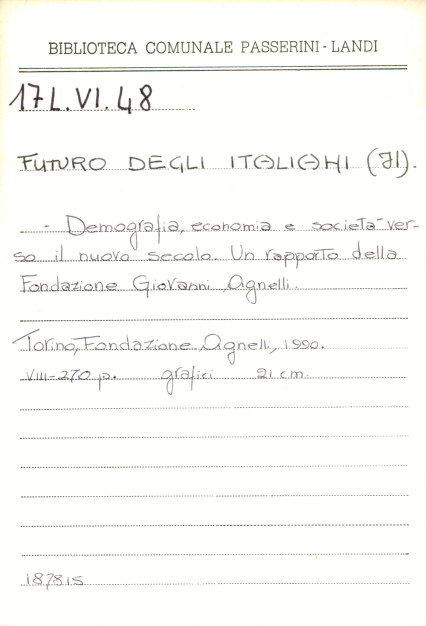 BIBLIOTECA COMUNALE PASSERINI - LANDI
17L.VI.48
FUTURO DEGLI ITALIANI (Il).
- Demografia, economia e società ver-
so il nuovo secolo. Un rapporto della
Fondazione Giovanni Agnelli.
Torino, Fondazione Agnelli, 1990.
VIII-270 p. grafici 21 cm.
187815